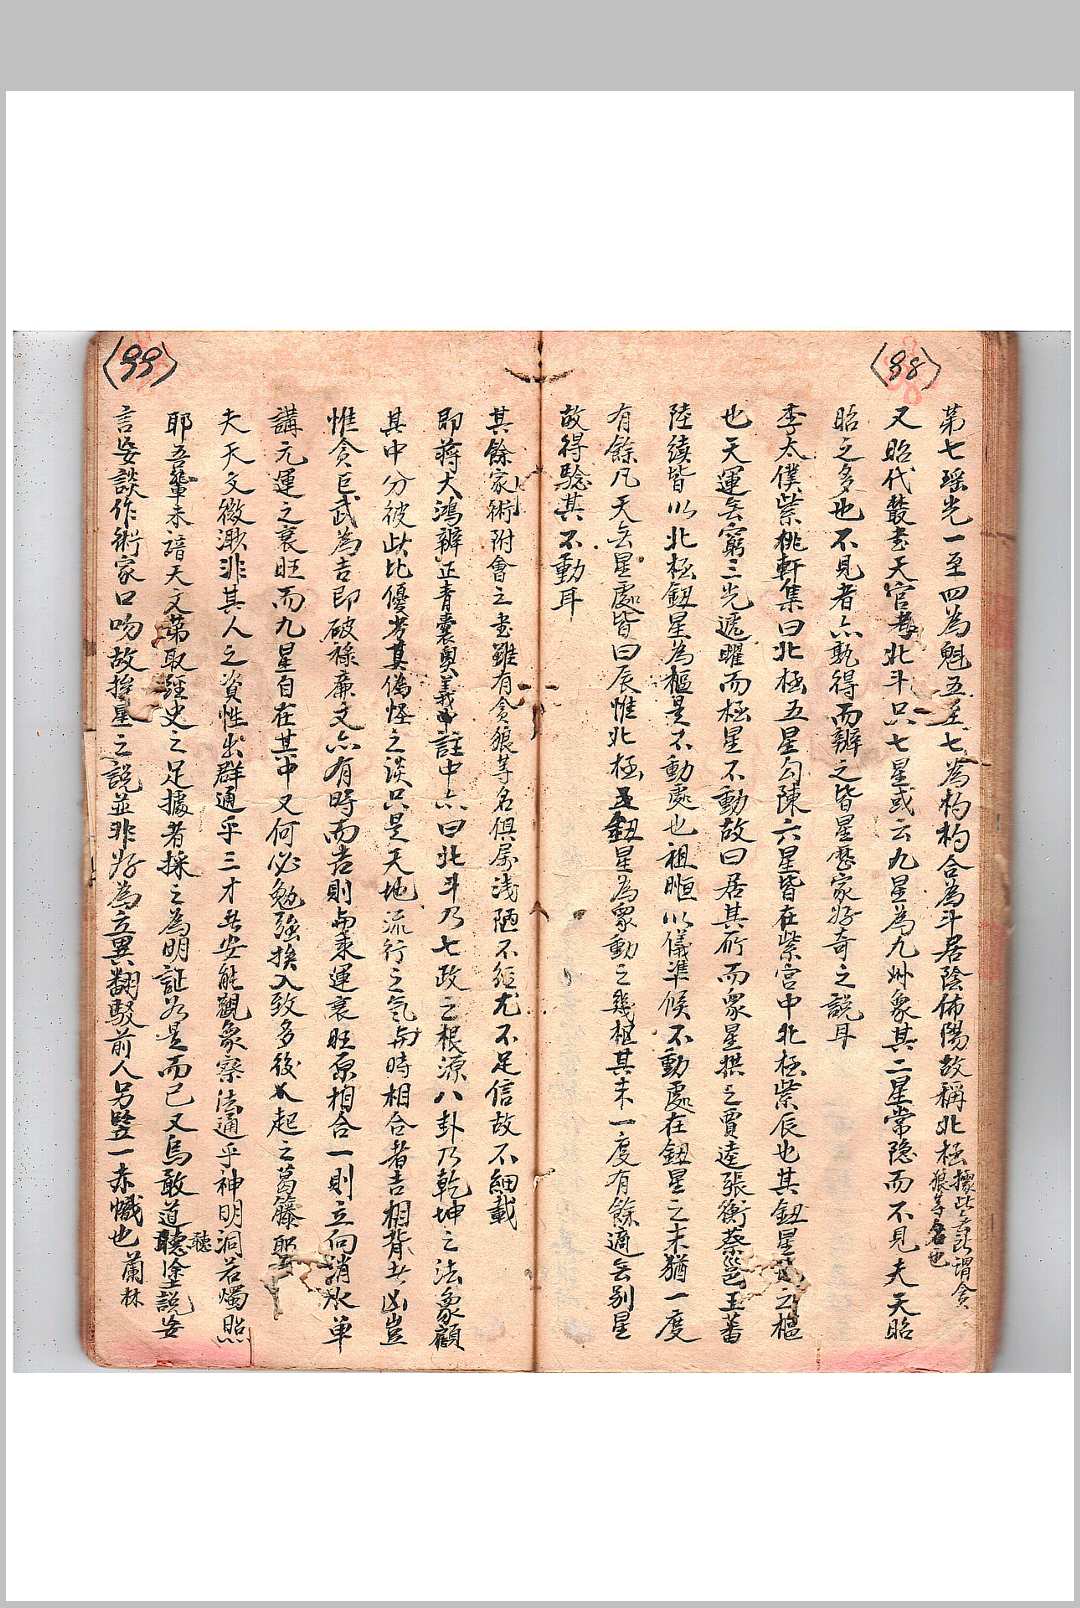 (98)
第七瑤光一至四為魁五至七為杓杓合為斗居陰佈陽故稱北極據此云所謂貪
狼等名也
又昭代叢書天官考北斗只七星或云九星為九州象其二星常隐而不見夫天昭
昭之多也不見者亦孰得而辦之皆星歷家好奇之說耳
李太僕紫桃軒集曰北極五星勾陳六星皆在紫宮中北極紫辰也其鈕星天之樞
也天運無窮三光遞曜而極星不動故曰居其所而眾星拱之賈逵張衡蔡邕王蕃
陸績皆以北極鈕星為樞是不動處也祖暅以儀準候不動處在鈕星之末猶一度
有餘凡天無星處皆曰辰惟北極五鈕星為眾動之幾樞其末一度有餘適無别星
故得騐其不動耳
(99)
其餘家術附會之書雖有貪狼等名俱屬浅陋不經尤不足信故不細載
即蔣大鴻辦正青囊奧義中註中亦曰北斗乃七政之根源八卦乃乾坤之法象顧
其中分彼此比優劣其偽怪之談只是天地流行之氣與時相合者吉相背者凶豈
惟貪巨武為吉即破祿廉文亦有時而吉則與乘運衰旺原相合一則立向消水单
講元運之衰旺而九星自在其中又何必勉強挨入致多後人起之葛籐耶
夫天文微渺非其人之資性出群通乎三才者安能觀象察法通乎神明洞若燭照
耶吾輩未諳天文第取經史之足據者採之為明証若是而已又烏敢道聽塗說妄
聽
言妄談作術家口吻故挨星之說並非好為立異翻駁前人另豎一赤幟也 蘭林